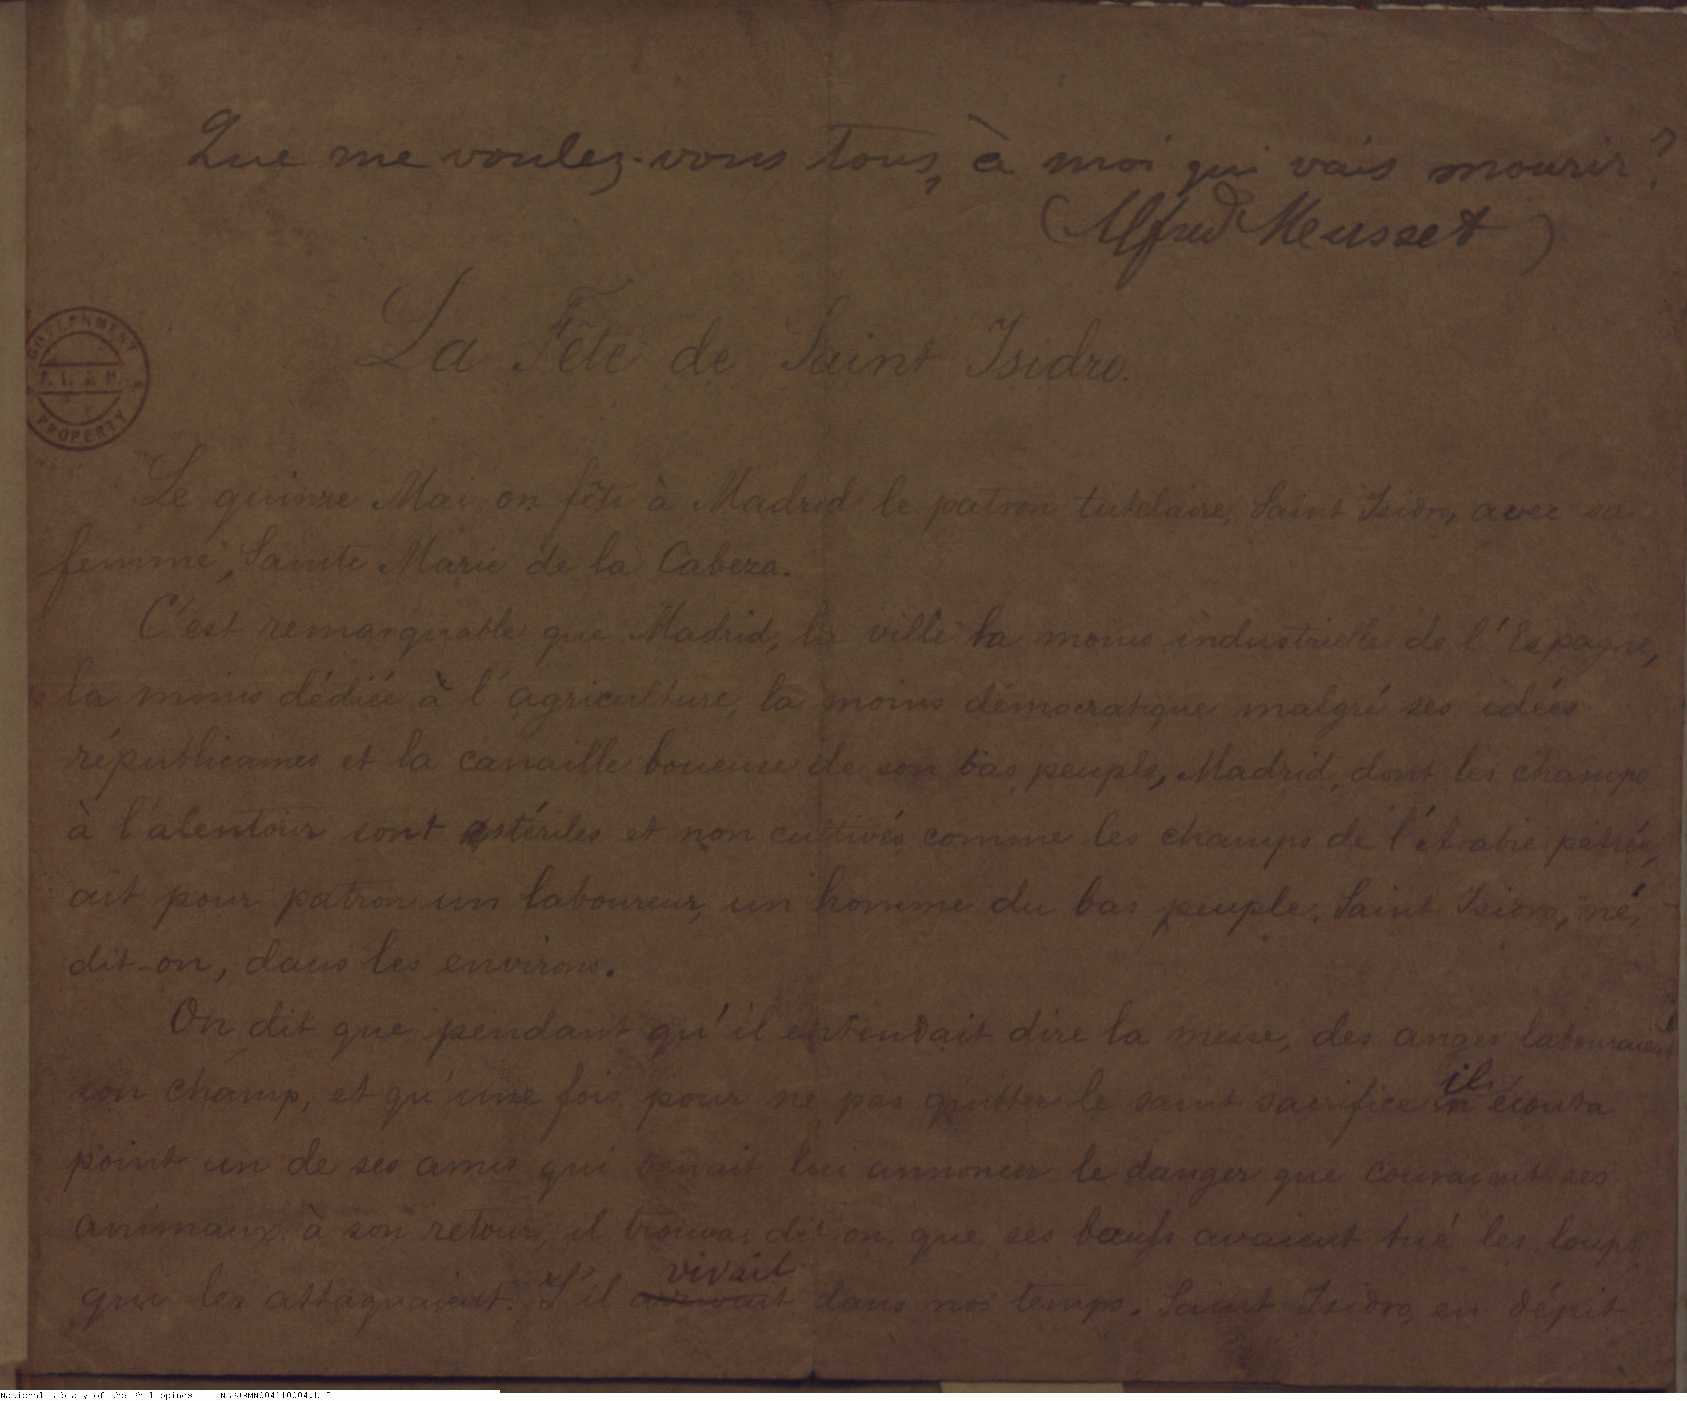 Que me voulez-vous tous, à moi qui vais mourir?
(Alfred Musset)
La Fête de Saint Isidre.
GOVERNMENT
P. L. & M.
PROPERTY
Le quinze Mai on fête à Madrid le patron tutelaire, Saint Isidro, avec sa
femme, Sainte Marie de la Cabeza.
C'est remarquable que Madrid, la ville la moins industrielle de l'Espagne,
la moins dédiée à l'agriculture, la moins démocratique malgré ses idées
républicaines et la canaille boueuse de son bas peuple, Madrid, dont les champs
à l'alentour sont stériles et non cultivés comme les champs de l'Arabie pétrée,
ait pour patron un laboureur, un homme du bas peuple, Saint Isidro, né,
dit-on, dans les environs.
On dit que pendant qu'il entendait dire la messe, des anges labouraient
son champ, et qu'une fois pour ne pas quitter le saint sacrifice il n'écouta
point un de ses amis qui venait lui annoncer le danger que couraient ses
animaux, à son retour, il trouva, dit on, que ses bœufs avaient tué les loups
qui les attaquaient. S'il vivait dans nos temps, Saint Isidro, en dépit
National Library of the Philippines